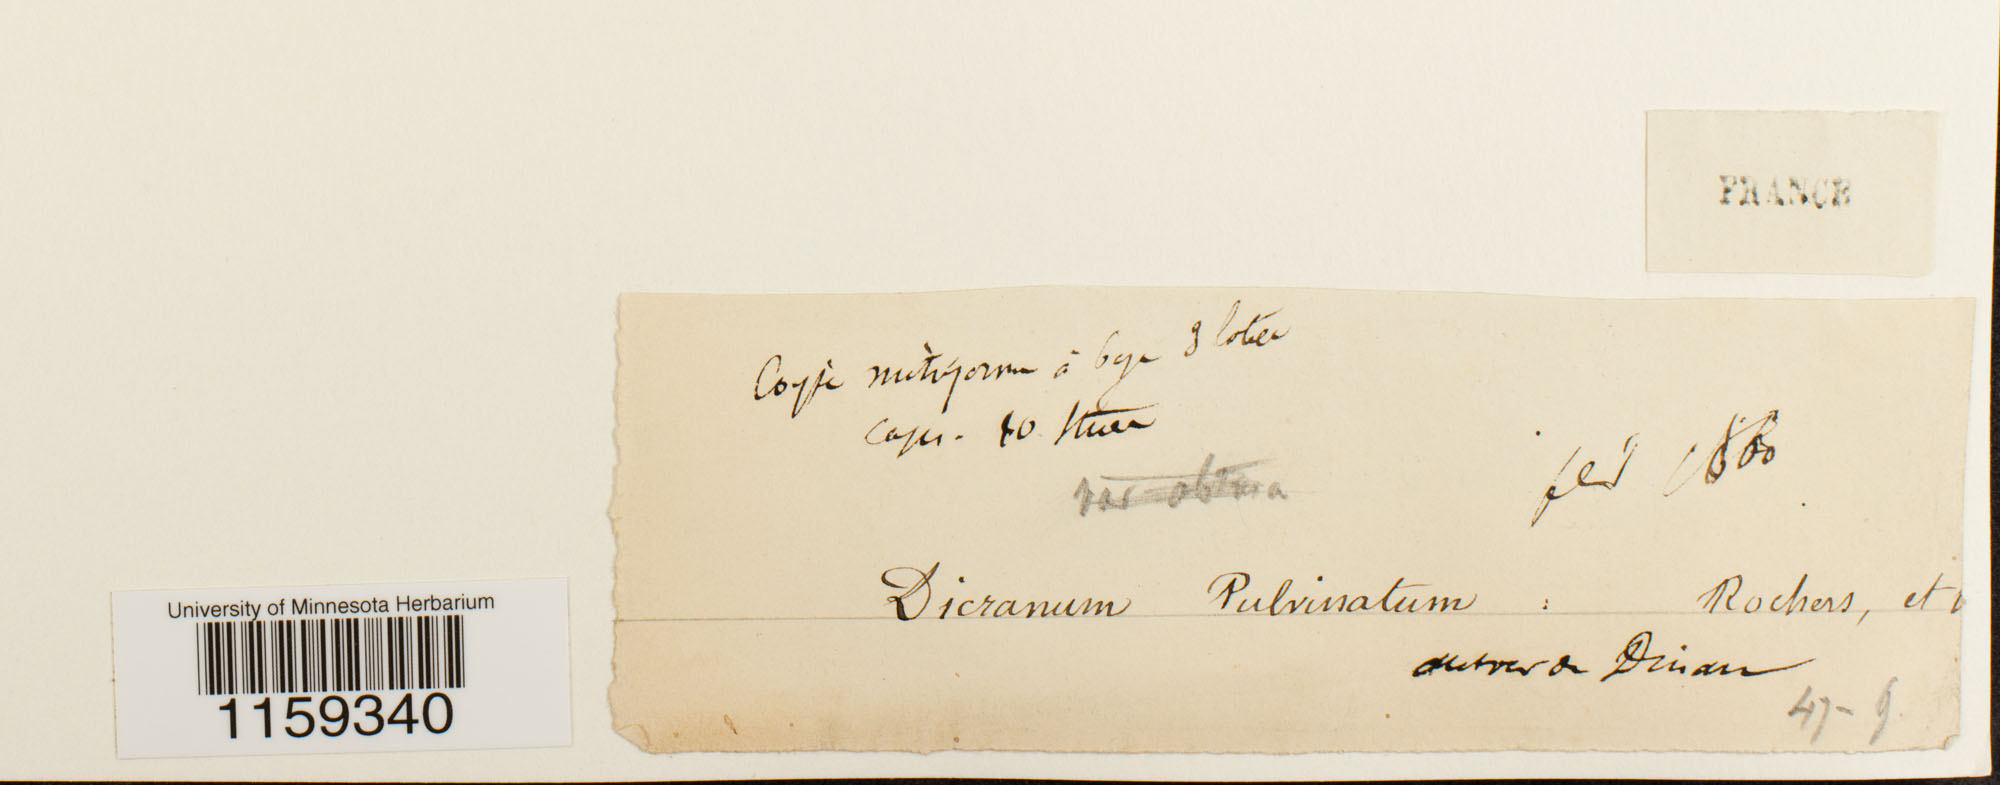 FRANCE
Coiffe mitriforme à base 8 lobée
caps. 10 striée
var obtusa
1860
Dicranum Pulvinatum : Rochers, et
de Dinan
47-9
University of Minnesota Herbarium
1159340